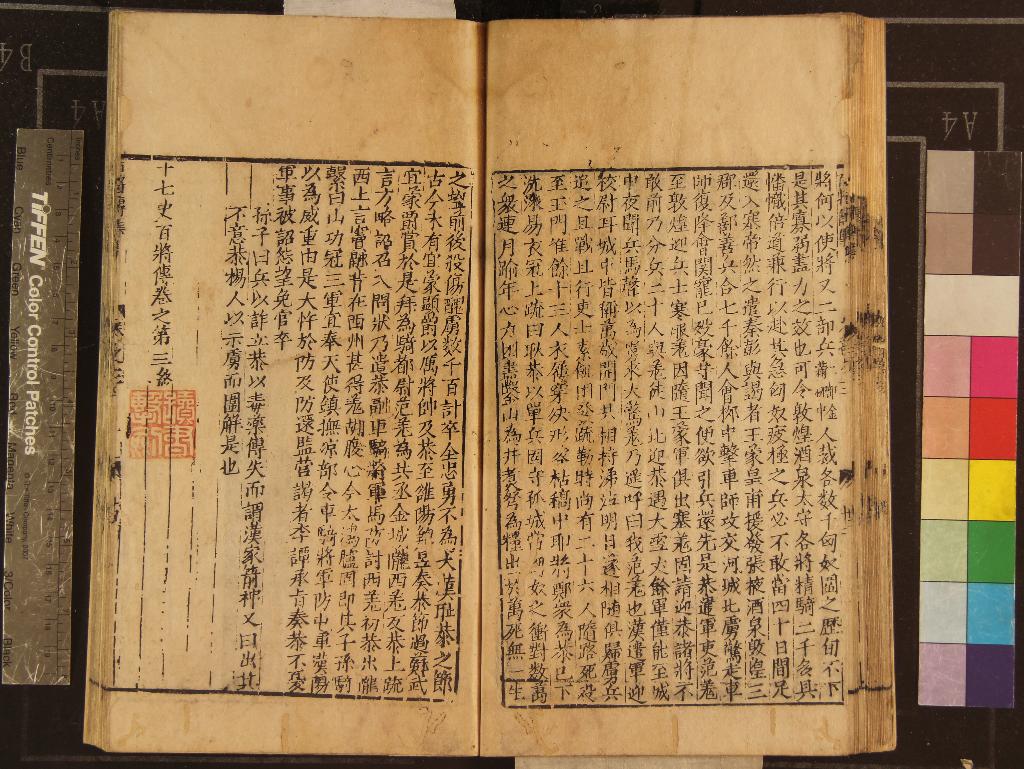 將何以使將又二部兵人裁各數十匈奴圍之歷旬不下
是其寡弱盡力之效也可令敦煌酒泉太守各將精騎二千多其
幡幟倍道兼行以赴其急匈奴疲極之兵必不敢當四十日間足
還入塞帝然之遣秦彭與謁者王蒙皇甫援發張掖酒泉敦煌三
郡及鄯善兵合七千餘人會柳中擊車師攻交河城北虜驚走車
師復降會關寵已歿蒙等聞之便欲引兵還先是恭遣軍吏范羌
至敦煌迎兵士寒服羌因隨王蒙軍俱出塞羌固請迎恭諸將不
敢前乃分兵二千人與羌從山北迎恭遇大雪丈餘軍僅能至城
中夜聞兵馬聲以為虜來大驚羌乃遙呼曰我范羌也漢遣軍迎
校尉耳城中皆稱萬歲開門共相持涕泣明日遂相隨俱歸虜兵
追之且戰且行吏士素飢困發疏勒時尚有二十六人隨路死沒
至玉門惟餘十三人衣屨穿決形容枯槁中郎將鄭眾為恭已下
洗沐易衣冠上疏曰耿恭以單兵固守孤城當匈奴之衝對數萬
之眾連月踰年心力困盡鑿山為井煮弩為糧出於萬死無一生
之望前後殺傷醜虜數千百計卒全忠勇不為大漢恥恭之節
古今未有宜蒙顯爵以厲將帥及恭至雒陽鮑昱奏恭節過蘇武
宜蒙爵賞於是拜為騎都尉范羌為共丞金城隴西羌反恭上疏
言方略詔召入問狀乃遣恭副車騎將軍馬防討西羌初恭出隴
西上言竇融昔在西州甚得羌胡腹心今大鴻臚固即其子孫前
擊白山功冠三軍宜奉大使鎮撫涼部令車騎將軍防屯軍漢陽
以為威重由是大忤於防及防還監營謁者李譚承旨奏恭不憂
軍事被詔怨望免官卒
孫子曰兵以詐立恭以毒藥傅矢而謂漢家箭神又曰出其
不意恭揚人以示虜而圍解是也
十七史百將傳卷之第三終